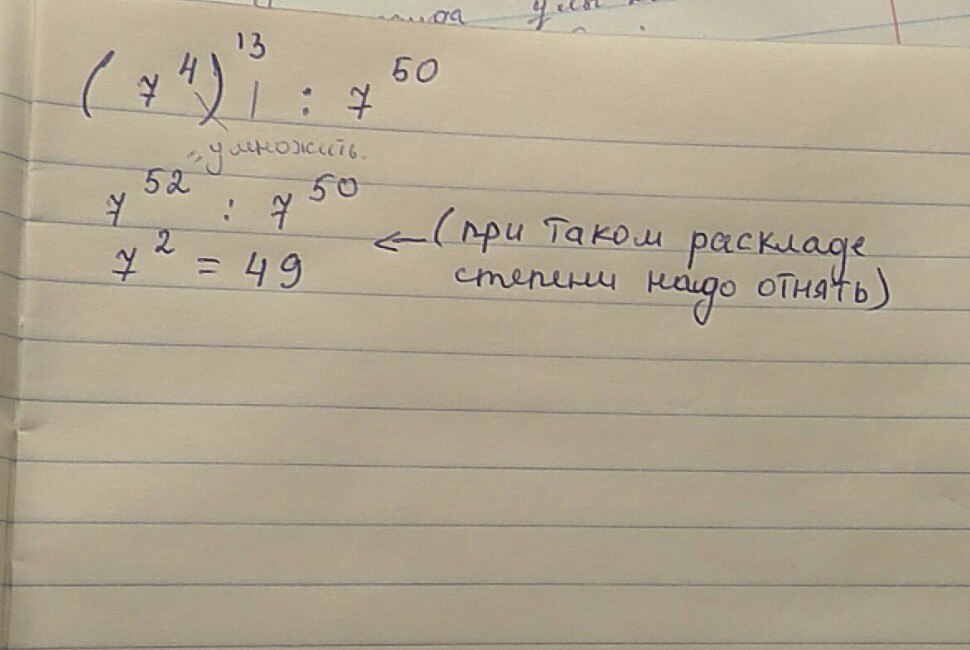 (7⁴)¹³ : 7⁵⁰
"умножить.
7⁵² : 7⁵⁰
← (при таком раскладе
7² = 49
степени надо отнять)